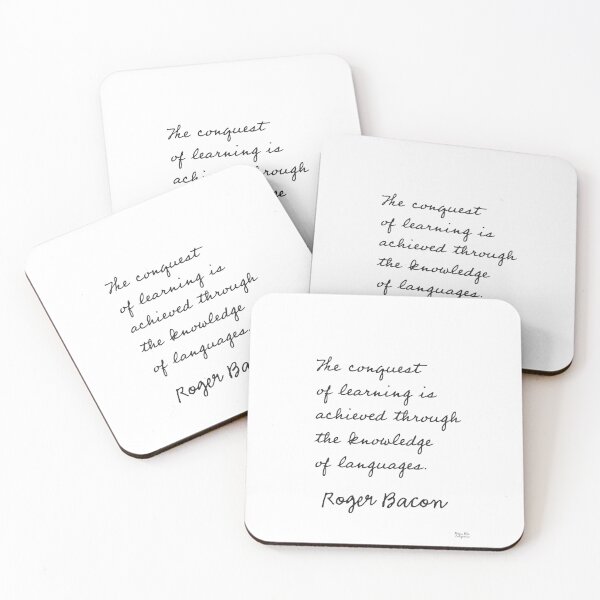 The conquest
of learning is
achieved through
The conquest
of learning is
achieved through
the knowledge
of languages.
The conquest
of learning is
achieved through
the knowledge
of languages.
Roger Ba
The conquest
of learning is
achieved through
the knowledge
of languages.
Roger Bacon